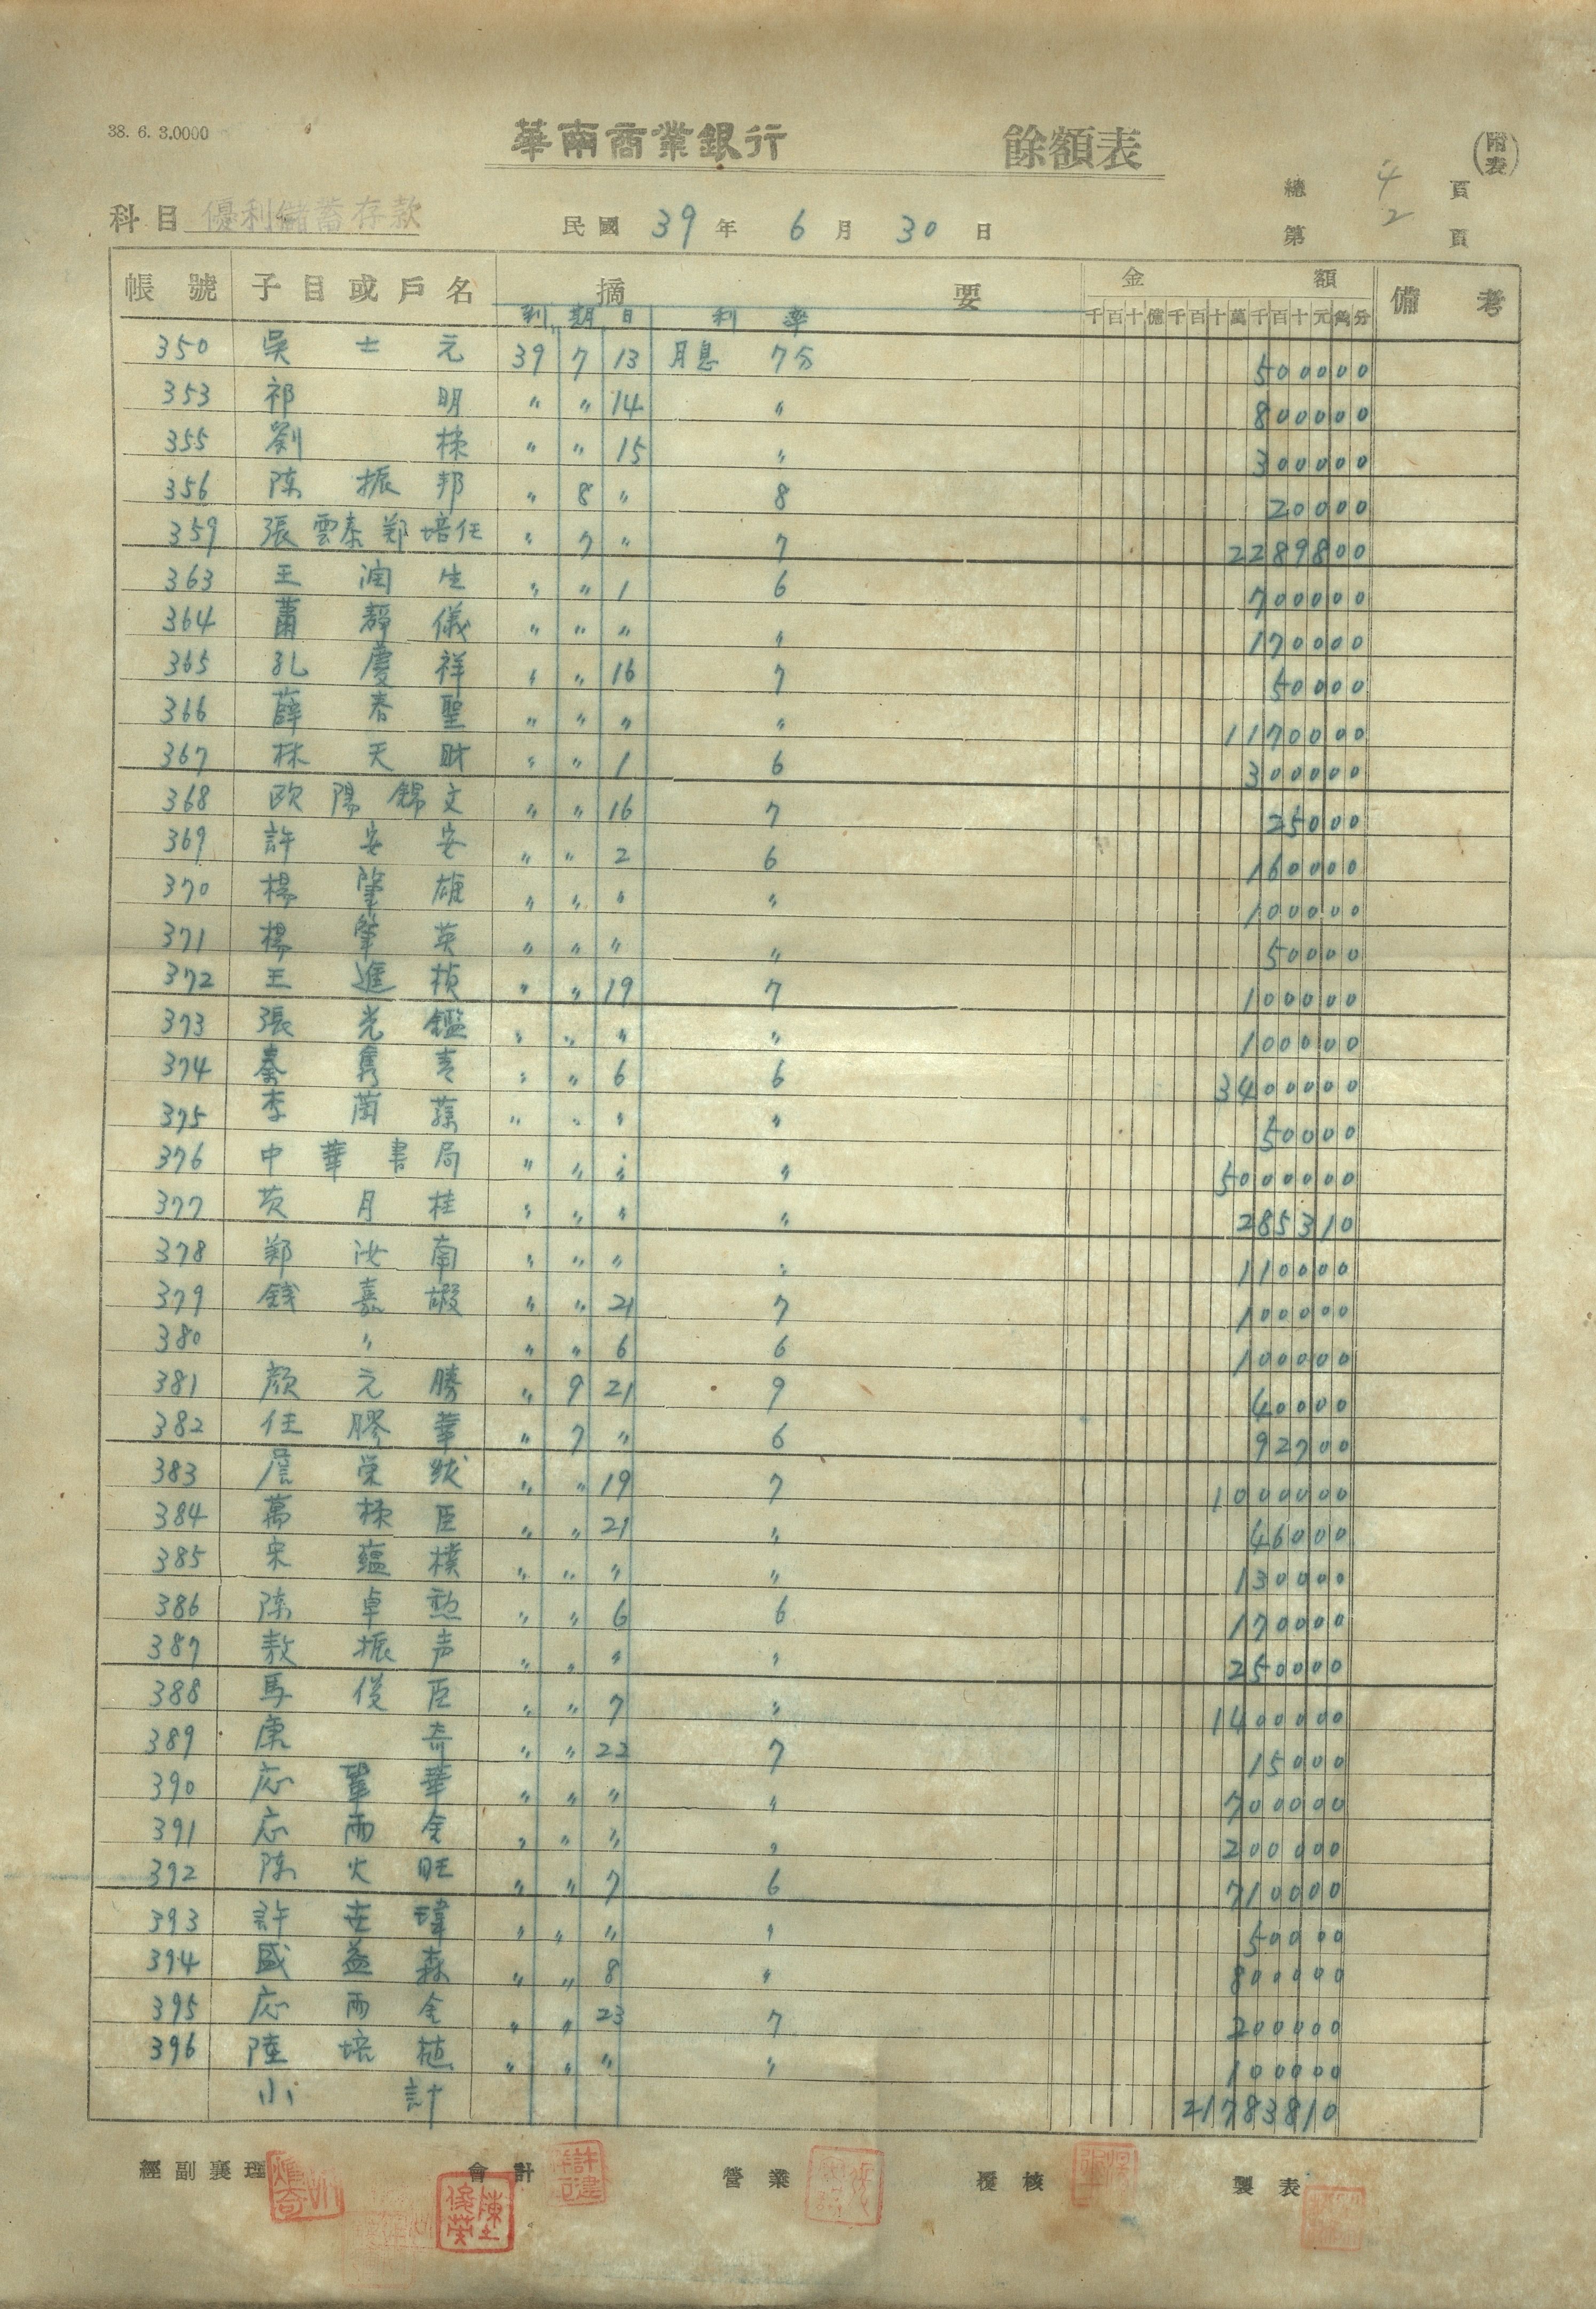 38. 6. 3.0000
華南商業銀行 餘額表 (附表)
總 4 頁
科目 優利儲蓄存款 民國 39 年 6 月 30 日 第 2 頁
帳號 子目或戶名 摘要 金額 備考
到期日 利率 千百十億千百十萬千百十元角分
350 吳士元 39 7 13 月息 7分 500000
353 祁明 〃 〃 14 〃 800000
355 劉 〃 〃 15 〃 300000
356 陈振邦 〃 8 〃 8 20000
359 張雲泰 鄭培任 〃 7 〃 7 2289800
363 王润生 〃 〃 1 6 700000
364 蕭靜儀 〃 〃 〃 〃 170000
365 孔慶祥 〃 〃 16 7 50000
366 薛春聖 〃 〃 〃 〃 1170000
367 林天財 〃 〃 1 6 300000
368 欧陽錦文 〃 〃 16 7 25000
369 許安安 〃 〃 2 6 160000
370 楊肇雄 〃 〃 〃 〃 100000
371 楊肇英 〃 〃 〃 〃 50000
372 王進楨 〃 〃 19 7 100000
373 張光鑑 〃 〃 〃 〃 100000
374 秦 〃 〃 6 6 3400000
375 李蘭蓀 〃 〃 〃 〃 50000
376 中華書局 〃 〃 〃 〃 5000000
377 黄月桂 〃 〃 〃 〃 285310
378 鄭汝南 〃 〃 〃 〃 110000
379 錢嘉嘏 〃 〃 21 7 100000
380 〃 〃 〃 6 6 100000
381 顏元勝 〃 9 21 9 40000
382 任膠華 〃 7 〃 6 92700
383 詹荣 〃 〃 19 7 1000000
384 萬臣 〃 〃 21 〃 46000
385 宋蘊樸 〃 〃 〃 〃 130000
386 陈卓 〃 〃 6 6 170000
387 敖振声 〃 〃 〃 〃 250000
388 馬俊臣 〃 〃 7 〃 1400000
389 康奇 〃 〃 22 7 15000
390 応華 〃 〃 〃 〃 700000
391 応雨金 〃 〃 〃 〃 200000
392 陈火旺 〃 〃 7 6 710000
393 許世瑋 〃 〃 〃 〃 50000
394 盛益森 〃 〃 8 〃 800000
395 応雨金 〃 〃 23 7 200000
396 陸培植 〃 〃 〃 〃 100000
小計 21783810
經副襄理 會計 營業 覆核 製表